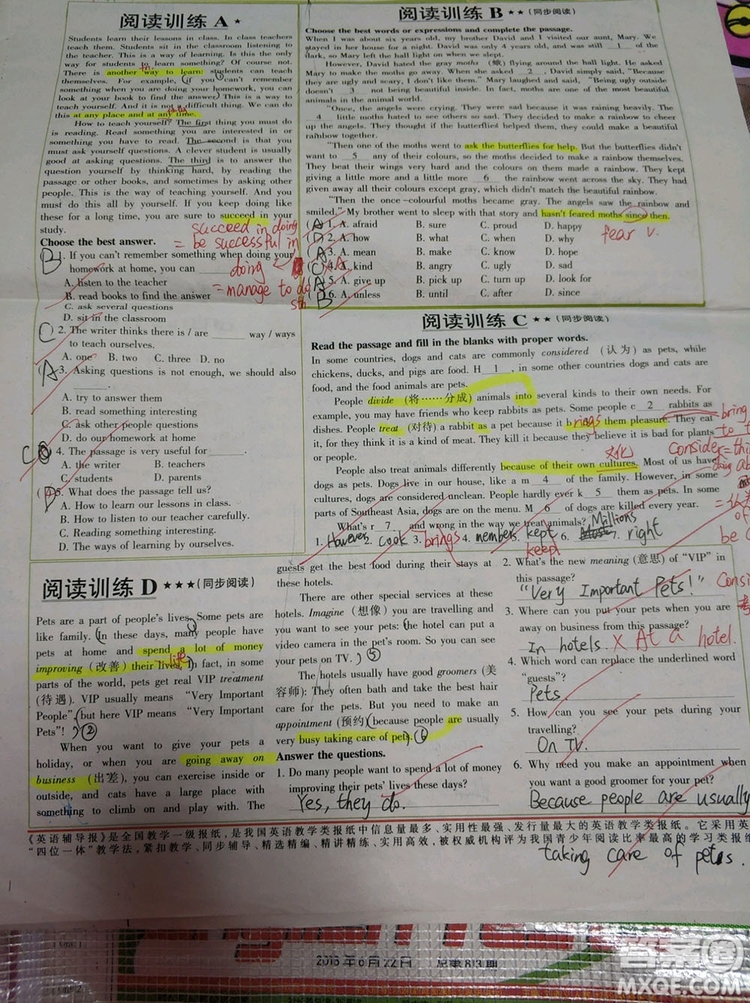 阅读训练 A ★
Students learn their lessons in class. In class teachers
teach them. Students sit in the classroom listening to
the teacher. This is a way of learning. Is this the only
way for students to learn something? Of course not.
There is another way to learn: students can teach
themselves. For example, if you can't remember
something when you are doing your homework, you can
look at your book to find the answer. This is a way to
teach yourself. And it is not difficult thing. We can do
this at any place and at any time.
How to teach yourself? The first thing you must do
is reading. Read something you are interested in or
something you have to read. The second is that you
must ask yourself questions. A clever student is usually
good at asking questions. The third is to answer the
question yourself by thinking hard, by reading the
passage or other books, and sometimes by asking other
people. This is the way of teaching yourself. And you
must do this all by yourself. If you keep doing like
these for a long time, you are sure to succeed in your
study.
succeed in doing
= be successful in
doing
= manage to do
Choose the best answer.
B 1. If you can't remember something when doing your
homework at home, you can
A. listen to the teacher
B. read books to find the answer
C. ask several questions
D. sit in the classroom
C 2. The writer thinks there is / are ______ way / ways
to teach ourselves.
A. one B. two C. three D. no
A 3. Asking questions is not enough, we should also
______.
A. try to answer them
B. read something interesting
C. ask other people questions
D. do our homework at home
C 4. The passage is very useful for ______.
A. the writer B. teachers
C. students D. parents
D 5. What does the passage tell us?
A. How to learn our lessons in class.
B. How to listen to our teacher carefully.
C. Reading something interesting.
D. The ways of learning by ourselves.
阅读训练 B ★★ (同步阅读)
Choose the best words or expressions and complete the passage.
When I was about six years old, my brother David and I visited our aunt, Mary. We
stayed in her house for a night. David was only 4 years old, and was still 1 of the
dark, so Mary left the hall light on when we slept.
However, David hated the gray moths (蛾) flying around the hall light. He asked
Mary to make the moths go away. When she asked 2 , David simply said, "Because
they are ugly and scary, I don't like them." Mary laughed and said, "Being ugly outside
doesn't 3 not being beautiful inside. In fact, moths are one of the most beautiful
animals in the animal world.
"Once, the angels were crying. They were sad because it was raining heavily. The
4 little moths hated to see others so sad. They decided to make a rainbow to cheer
up the angels. They thought if the butterflies helped them, they could make a beautiful
rainbow together.
"Then one of the moths went to ask the butterflies for help. But the butterflies didn't
want to 5 any of their colours, so the moths decided to make a rainbow themselves.
They beat their wings very hard and the colours on them made a rainbow. They kept
giving a little more and a little more 6 the rainbow went across the sky. They had
given away all their colours except gray, which didn't match the beautiful rainbow.
"Then the once-colourful moths became gray. The angels saw the rainbow and
smiled." My brother went to sleep with that story and hasn't feared moths since then.
fear v.
(A) 1. A. afraid B. sure C. proud D. happy
(D) 2. A. how B. what C. when D. why
(A) 3. A. mean B. make C. know D. hope
4. A. kind B. angry C. ugly D. sad
(A) 5. A. give up B. pick up C. turn up D. look for
6. A. unless B. until C. after D. since
阅读训练 C ★★ (同步阅读)
Read the passage and fill in the blanks with proper words.
In some countries, dogs and cats are commonly considered (认为) as pets, while
chickens, ducks, and pigs are food. H 1 , in some other countries dogs and cats are
food, and the food animals are pets.
People divide (将……分成) animals into several kinds to their own needs. For
example, you may have friends who keep rabbits as pets. Some people c 2 rabbits as
dishes. People treat (对待) a rabbit as a pet because it brings them pleasure. They eat
it, for they think it is a kind of meat. They kill it because they believe it is bad for plants
or people.
文化
People also treat animals differently because of their own cultures. Most of us have
dogs as pets. Dogs live in our house, like a m 4 of the family. However, in some
cultures, dogs are considered unclean. People hardly ever k 5 them as pets. In some
parts of Southeast Asia, dogs are on the menu. M 6 of dogs are killed every year.
What's r 7 and wrong in the way we treat animals? Millions
1. However 2. cook 3. brings 4. members kept 6. right
keep
阅读训练 D ★★★ (同步阅读)
Pets are a part of people's lives. Some pets are
like family. In these days, many people have
pets at home and spend a lot of money
improving (改善) their lives. In fact, in some
life
parts of the world, pets get real VIP treatment
(待遇). VIP usually means "Very Important
People", but here VIP means "Very Important
Pets"! ②
When you want to give your pets a
holiday, or when you are going away on
business (出差), you can exercise inside or
outside, and cats have a large place with
something to climb on and play with. The
guests get the best food during their stays at
these hotels.
There are other special services at these
hotels. Imagine (想像) you are travelling and
you want to see your pets: the hotel can put a
video camera in the pet's room. So you can see
your pets on TV. ⑤
The hotels usually have good groomers (美
容师): They often bath and take the best hair
care for the pets. But you need to make an
appointment (预约) because people are usually
very busy taking care of pets. ⑥
Answer the questions.
1. Do many people want to spend a lot of money
improving their pets' lives these days?
Yes, they do.
2. What's the new meaning (意思) of "VIP" in
this passage?
"Very Important Pets!"
3. Where can you put your pets when you are
away on business from this passage?
In hotels. X At a hotel.
4. Which word can replace the underlined word
"guests"?
Pets.
5. How can you see your pets during your
travelling?
On TV.
6. Why need you make an appointment when
you want a good groomer for your pet?
Because people are usually
taking care of pets.
《英语辅导报》是全国教学一级报纸，是我国英语教学类报纸中信息量最多、实用性最强、发行量最大的英语教学类报纸。它采用英
"四位一体"教学法，紧扣教学、同步辅导、精选精编、精讲精练、实用高效，被权威机构评为我国青少年阅读比率最高的学习类报纸
2013年6月22日 总第813期
答案圈
MXQE.COM